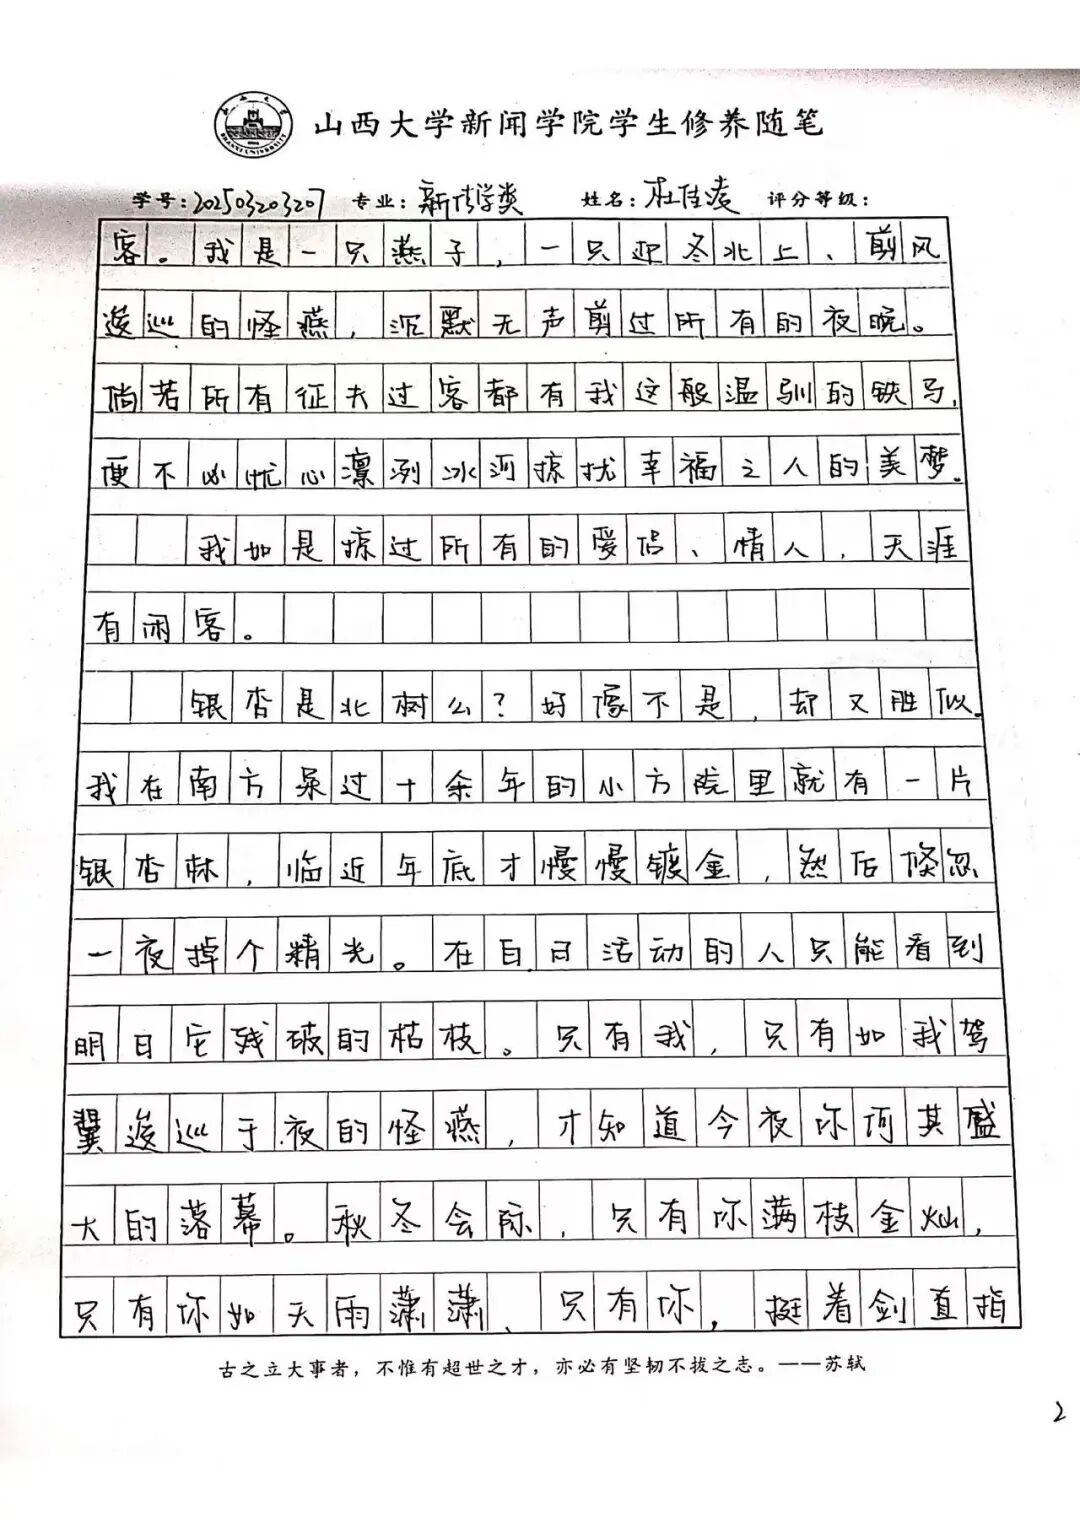 山西大学新闻学院学生修养随笔
学号:202503203207 专业:新传学类 姓名:杜佳凌 评分等级:
客。我是一只燕子,一只迎冬北上、剪风
逡巡的怪燕,沉默无声剪过所有的夜晚。
倘若所有征夫过客都有我这般温驯的铁马,
便不必忧心凛冽冰河掠扰幸福之人的美梦。
我如是掠过所有的爱侣、情人,天涯
有闲客。
银杏是北树么?好像不是,却又胜似。
我在南方呆过十余年的小方院里就有一片
银杏林,临近年底才慢慢镀金,然后倏忽
一夜掉个精光。在白日活动的人只能看到
明日它残破的枯枝。只有我,只有如我驾
翼逡巡于夜的怪燕,才知道今夜你何其盛
大的落幕。秋冬会际,只有你满枝金灿,
只有你如天雨潇潇、只有你,挺着剑直指
古之立大事者,不惟有超世之才,亦必有坚韧不拔之志。——苏轼
2